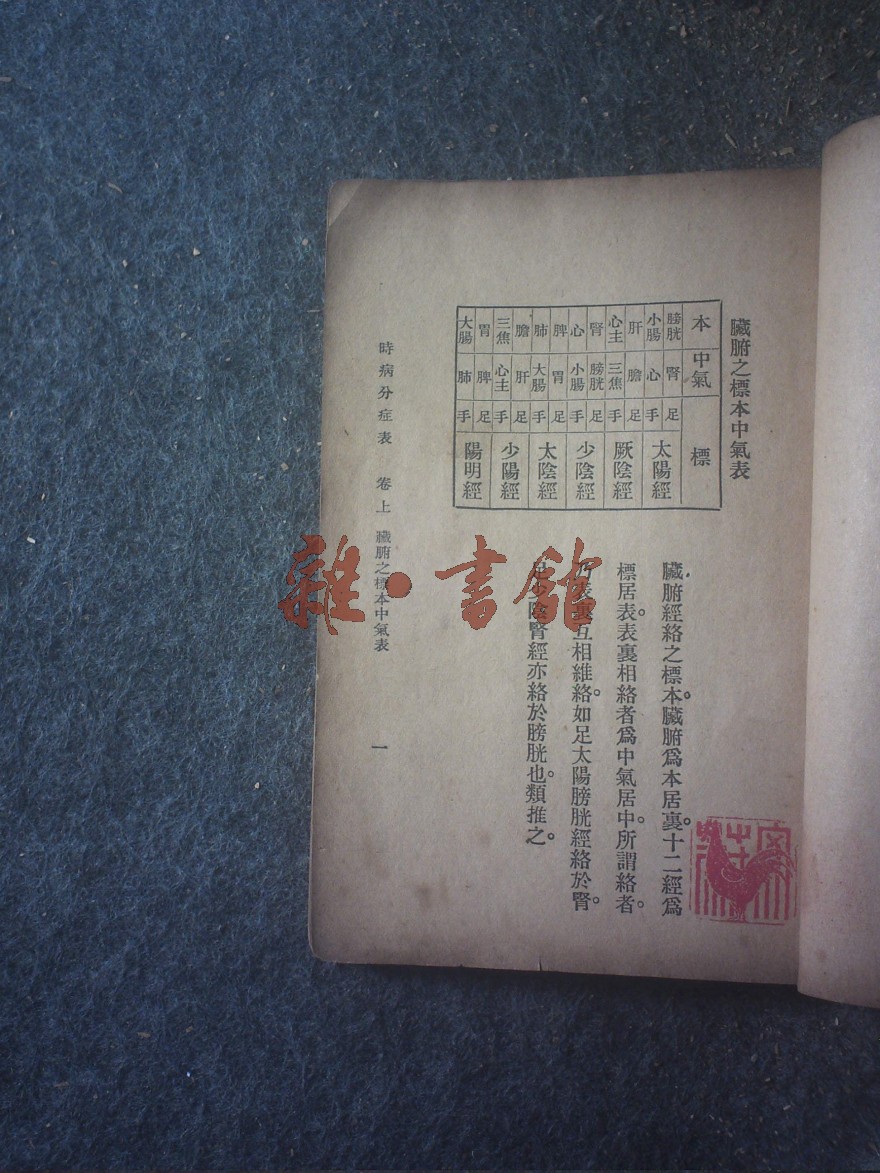 臟腑之標本中氣表
本 中氣 標
膀胱 腎 足 太陽經
小腸 心 手
肝 膽 足 厥陰經
心主 三焦 手
腎 膀胱 足 少陰經
心 小腸 手
脾 胃 足 太陰經
肺 大腸 手
膽 肝 足 少陽經
三焦 心主 手
胃 脾 足 陽明經
大腸 肺 手
臟腑經絡之標本。臟腑爲本居裏。十二經爲
標居表。表裏相絡者爲中氣居中。所謂絡者。
乃表裏互相維絡。如足太陽膀胱經絡於腎。
足少陰腎經亦絡於膀胱也。類推之。
時病分症表 卷上 臟腑之標本中氣表 一
雜·書館